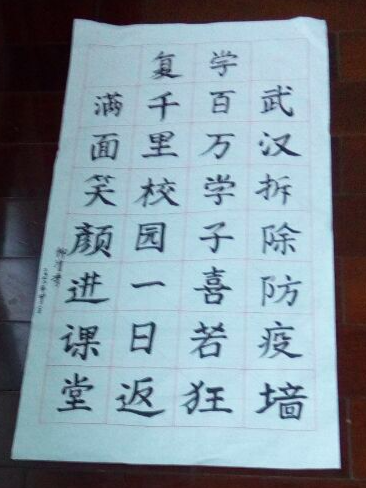 复学
武汉拆除防疫墙
百万学子喜若狂
千里校园一日返
满面笑颜进课堂